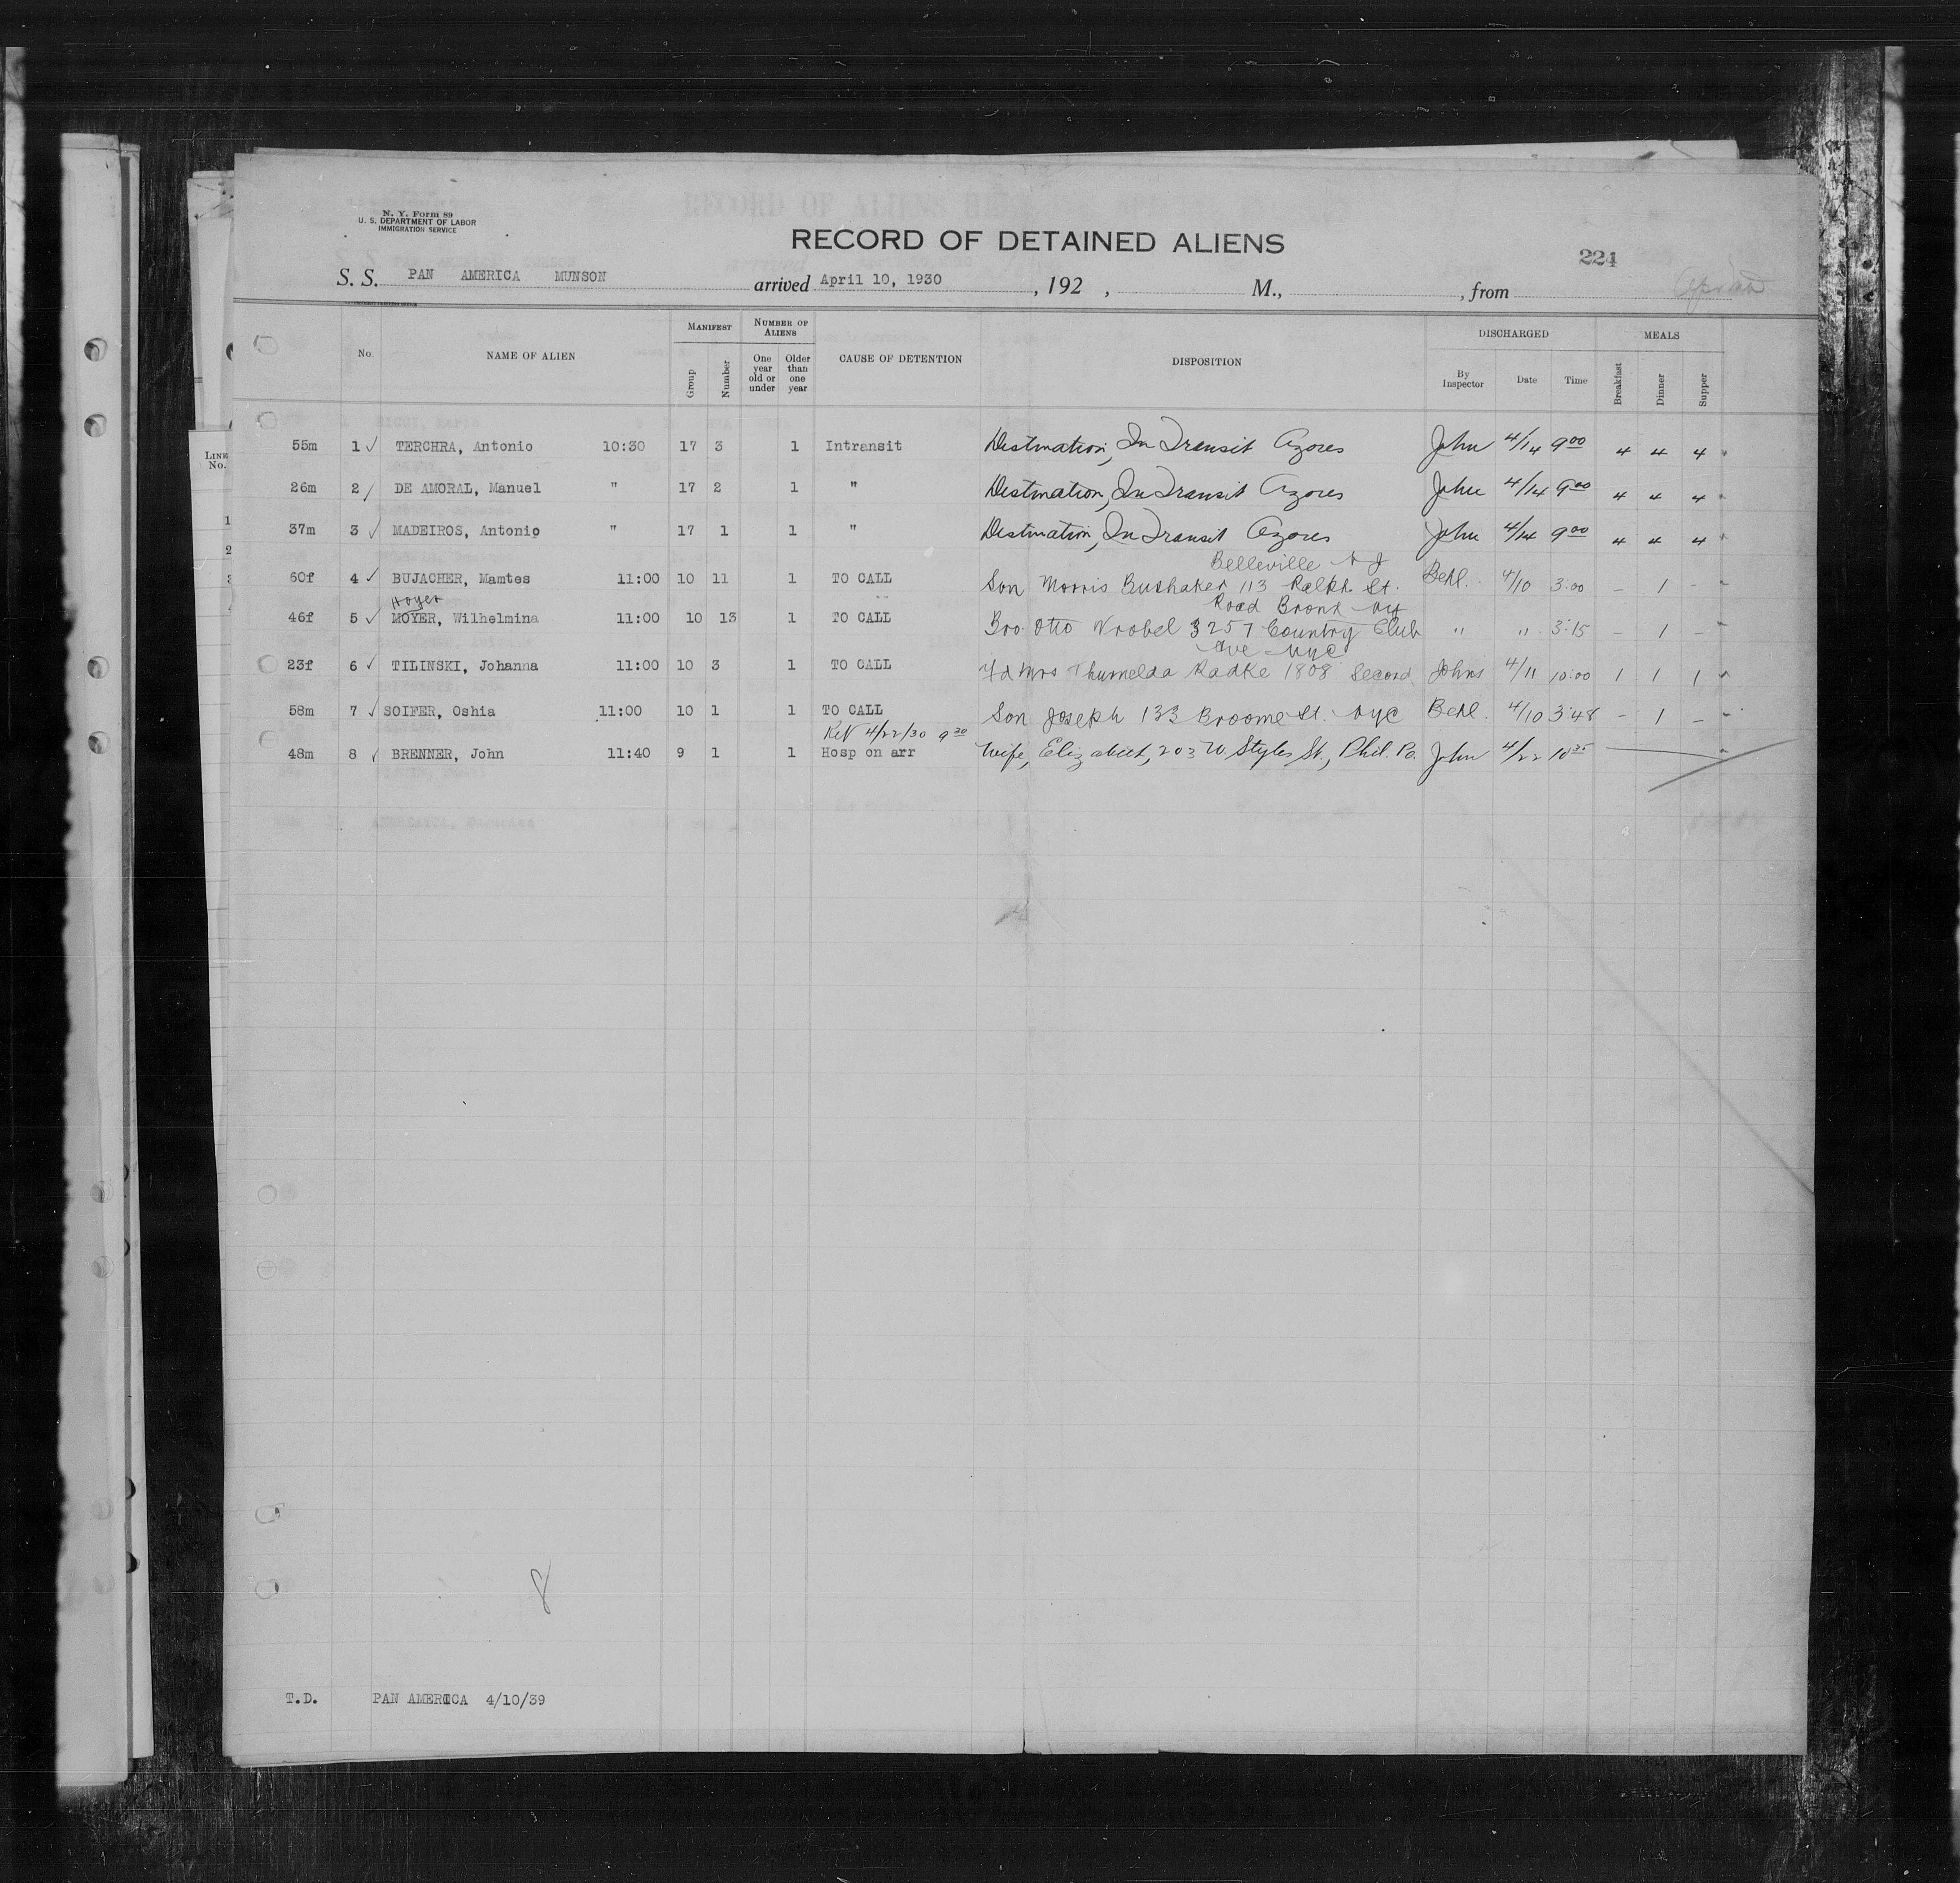 N. Y. Form 89
U. S. DEPARTMENT OF LABOR
IMMIGRATION SERVICE
RECORD OF DETAINED ALIENS
224
S. S. PAN AMERICA MUNSON arrived April 10, 1930, 192 , M., from
No. NAME OF ALIEN MANIFEST Group Number NUMBER OF ALIENS One year old or under Older than one year CAUSE OF DETENTION DISPOSITION DISCHARGED By Inspector Date Time MEALS Breakfast Dinner Supper
55m 1 ✓ TERCHRA, Antonio 10:30 17 3 1 Intransit Destination, In Transit Azores John 4/14 9 00 4 4 4
26m 2 / DE AMORAL, Manuel " 17 2 1 " Destination, In Transit Azores John 4/14 9 00 4 4 4
37m 3 ✓ MADEIROS, Antonio " 17 1 1 " Destination, In Transit Azores John 4/14 9 00 4 4 4
Belleville N J
60f 4 ✓ BUJACHER, Mamtes 11:00 10 11 1 TO CALL Son Morris Bushaker 113 Ralph St. Behl. 4/10 3:00 – 1 –
Hoyer Road Bronx NY
46f 5 ✓ MOYER, Wilhelmina 11:00 10 13 1 TO CALL Bro Otto Wrobel 3257 Country Club " " 3:15 – 1 –
Ave NYC
23f 6 ✓ TILINSKI, Johanna 11:00 10 3 1 TO CALL Fd Mrs Thumelda Radke 1808 Second Johns 4/11 10:00 1 1 1
58m 7 ✓ SOIFER, Oshia 11:00 10 1 1 TO CALL Son Joseph 133 Broome St. NYC Behl. 4/10 3:48 – 1 –
4/22/30 9 30
48m 8 ✓ BRENNER, John 11:40 9 1 1 Hosp on arr Wife, Elizabeth, 203 W Styles St., Phil. Pa. John 4/22 10 35
8
T.D. PAN AMERICA 4/10/39
LINE
No.
1
2
3